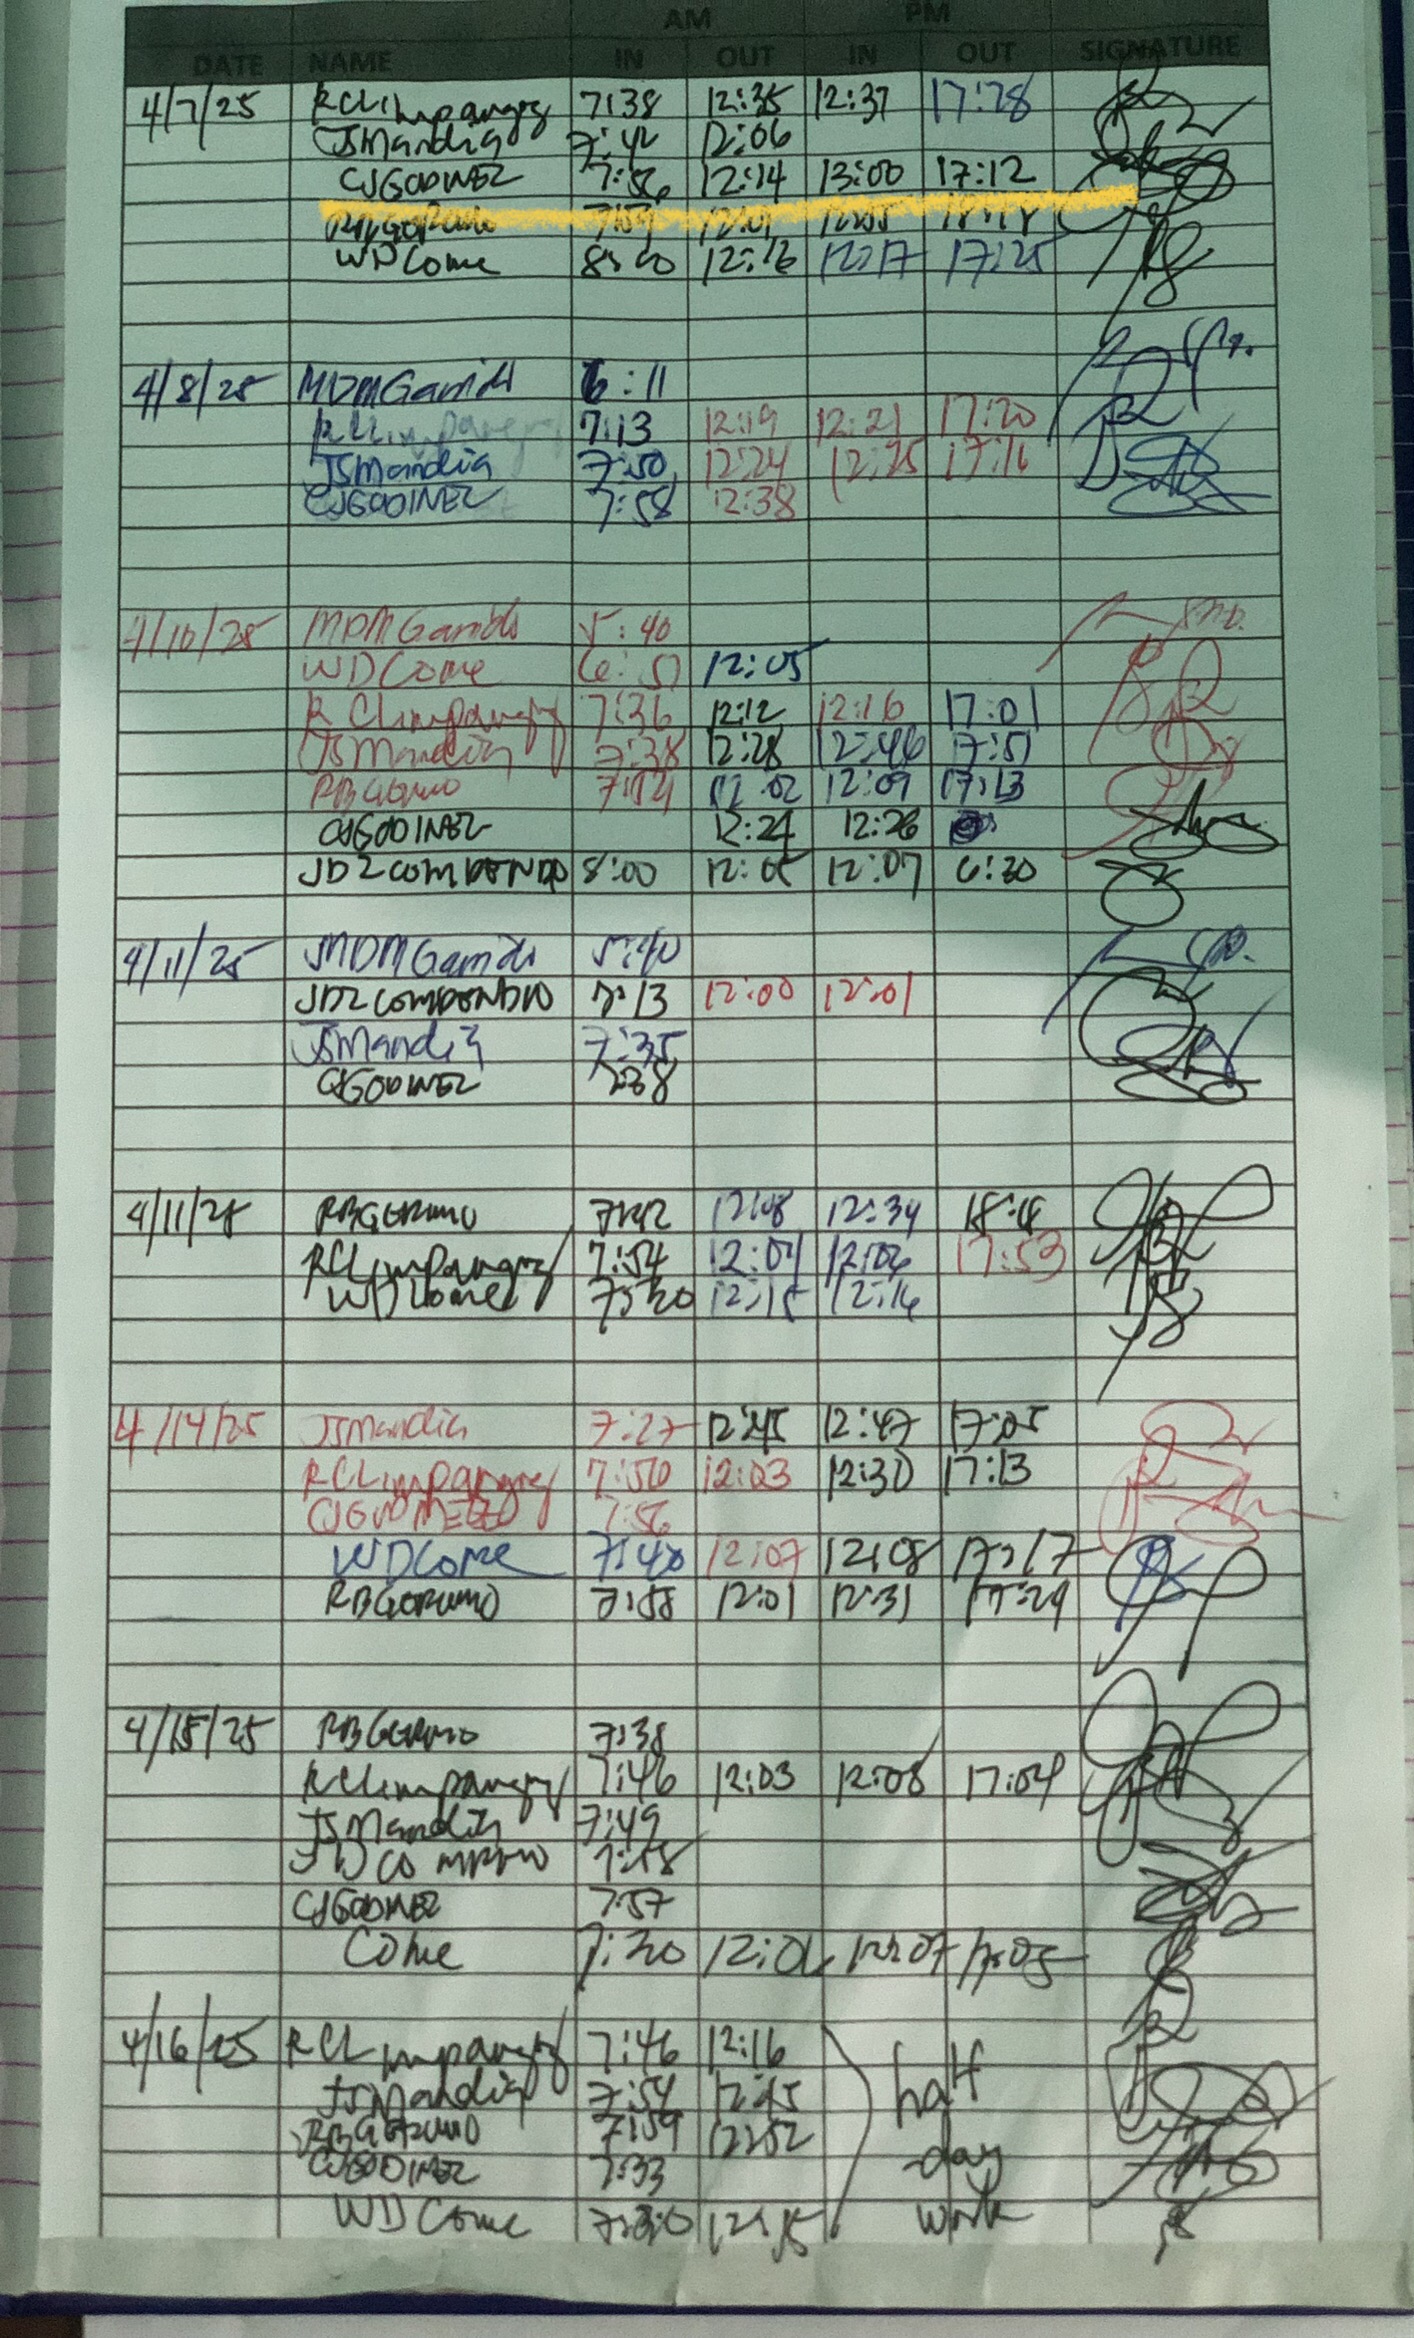 AM PM
DATE NAME IN OUT IN OUT SIGNATURE
4/7/25 RCLimpangog 7:38 12:35 12:37 17:28
JSMandia 7:42 12:06
CJGODINEZ 7:56 12:14 13:00 17:12
7:59 12:01
WDCome 8:00 12:16 12:17 17:25
4/8/25 MDMGamido 6:11
RCLimpangog 7:13 12:19 12:21 17:20
JSMandia 7:50 12:24 12:25 17:16
CJGODINEZ 7:58 12:38
4/10/25 MDMGamido 5:40
WDCome 6:51 12:05
RCLimpangog 7:36 12:12 12:16 17:01
JSMandia 7:38 12:28 12:46 17:51
RBGerumo 12:02 12:09 17:13
CJGODINEZ 12:24 12:26
JDZCOMPENDIO 8:00 12:05 12:07 6:30
4/11/25 MDMGamido 5:40
JDZCOMPENDIO 7:13 12:00 12:01
JSMandia 7:35
CJGODINEZ 7:38
4/11/25 RBGERUMO 7:42 12:08 12:34
RCLimpangog 7:54 12:04 12:06 17:53
WDCome 7:20 12:15 12:16
4/14/25 JSMandia 7:27 12:45 12:47 17:05
RCLimpangog 7:56 12:03 12:30 17:13
CJGODINEZ 7:56
WDCome 7:48 12:07 12:08 17:17
RBGERUMO 7:58 12:01 12:31 17:29
4/15/25 RBGERUMO 7:38
RCLimpangog 7:46 12:03 12:08 17:04
JSMandia 7:49
7:58
CJGODINEZ 7:57
Come 7:30 12:06 12:07 17:05
4/16/25 RCLimpangog 7:46 12:16 half
JSMandia 7:54 12:45
RBGERUMO 7:59 12:52 day
CJGODINEZ 7:33
WDCome 7:30 12:15 work